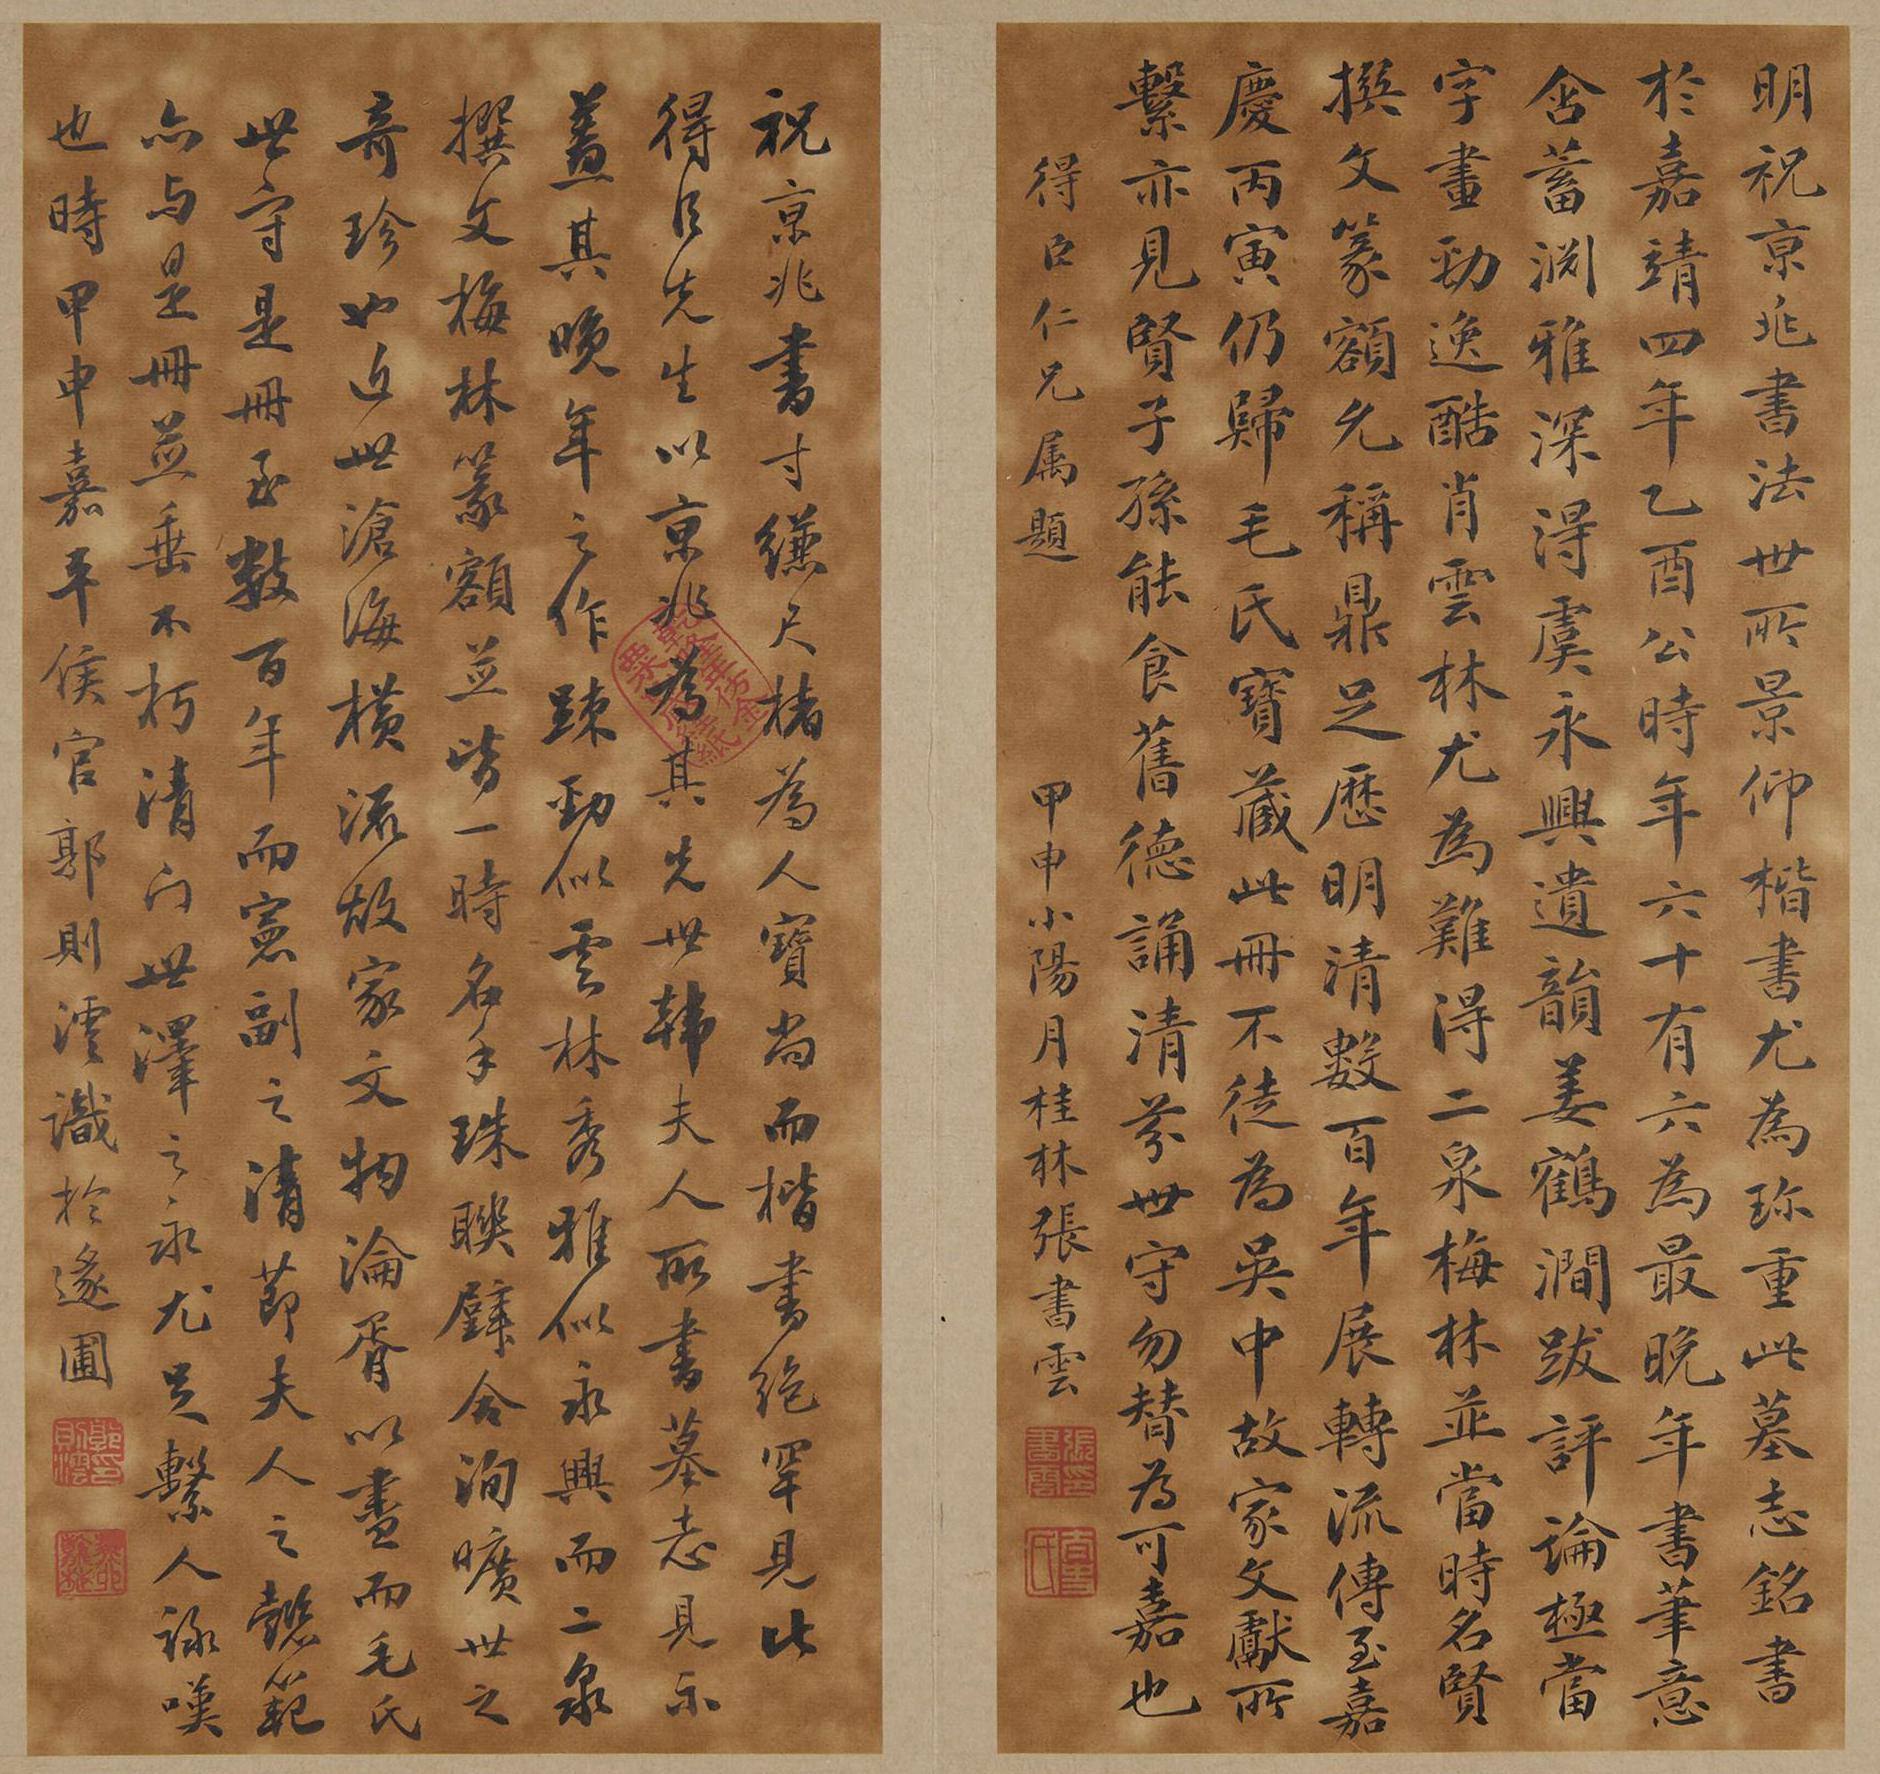 明祝京兆書法世所景仰楷書尤為珍重此墓志銘書
於嘉靖四年乙酉公時年六十有六為最晚年書筆意
含蓄渊雅深淂虞永興遺韻姜鶴澗跋評論極當
字畫勁逸酷肖雲林尤為難淂二泉梅林並當時名賢
撰文篆額允稱鼎足歷明清數百年展轉流傳至嘉
慶丙寅仍歸毛氏寶藏此冊不徒為吳中故家文獻所
繫亦見賢子孫能食舊德誦清芬世守勿替為可嘉也
得臣仁兄属題
甲申小陽月桂林張書雲
張書雲印
祝京兆書寸縑尺楮為人寶尚而楷書絶罕見此
得臣先生以京兆為其先世韩夫人所書墓志見示
蓋其晚年之作踈勁似雲林秀雅似永興而二泉
撰文梅林篆額並皆一時名手珠聯璧合洵曠世之
奇珍也近世滄海橫流故家文物淪胥以盡而毛氏
世守是冊至數百年而寠副之清節夫人之懿範
亦与是冊並垂不朽清门世澤之永尤足繫人詠嘆
也時甲申嘉平侯官郭則澐識於遂圃
乾隆年仿金粟山藏經紙
郭則澐印